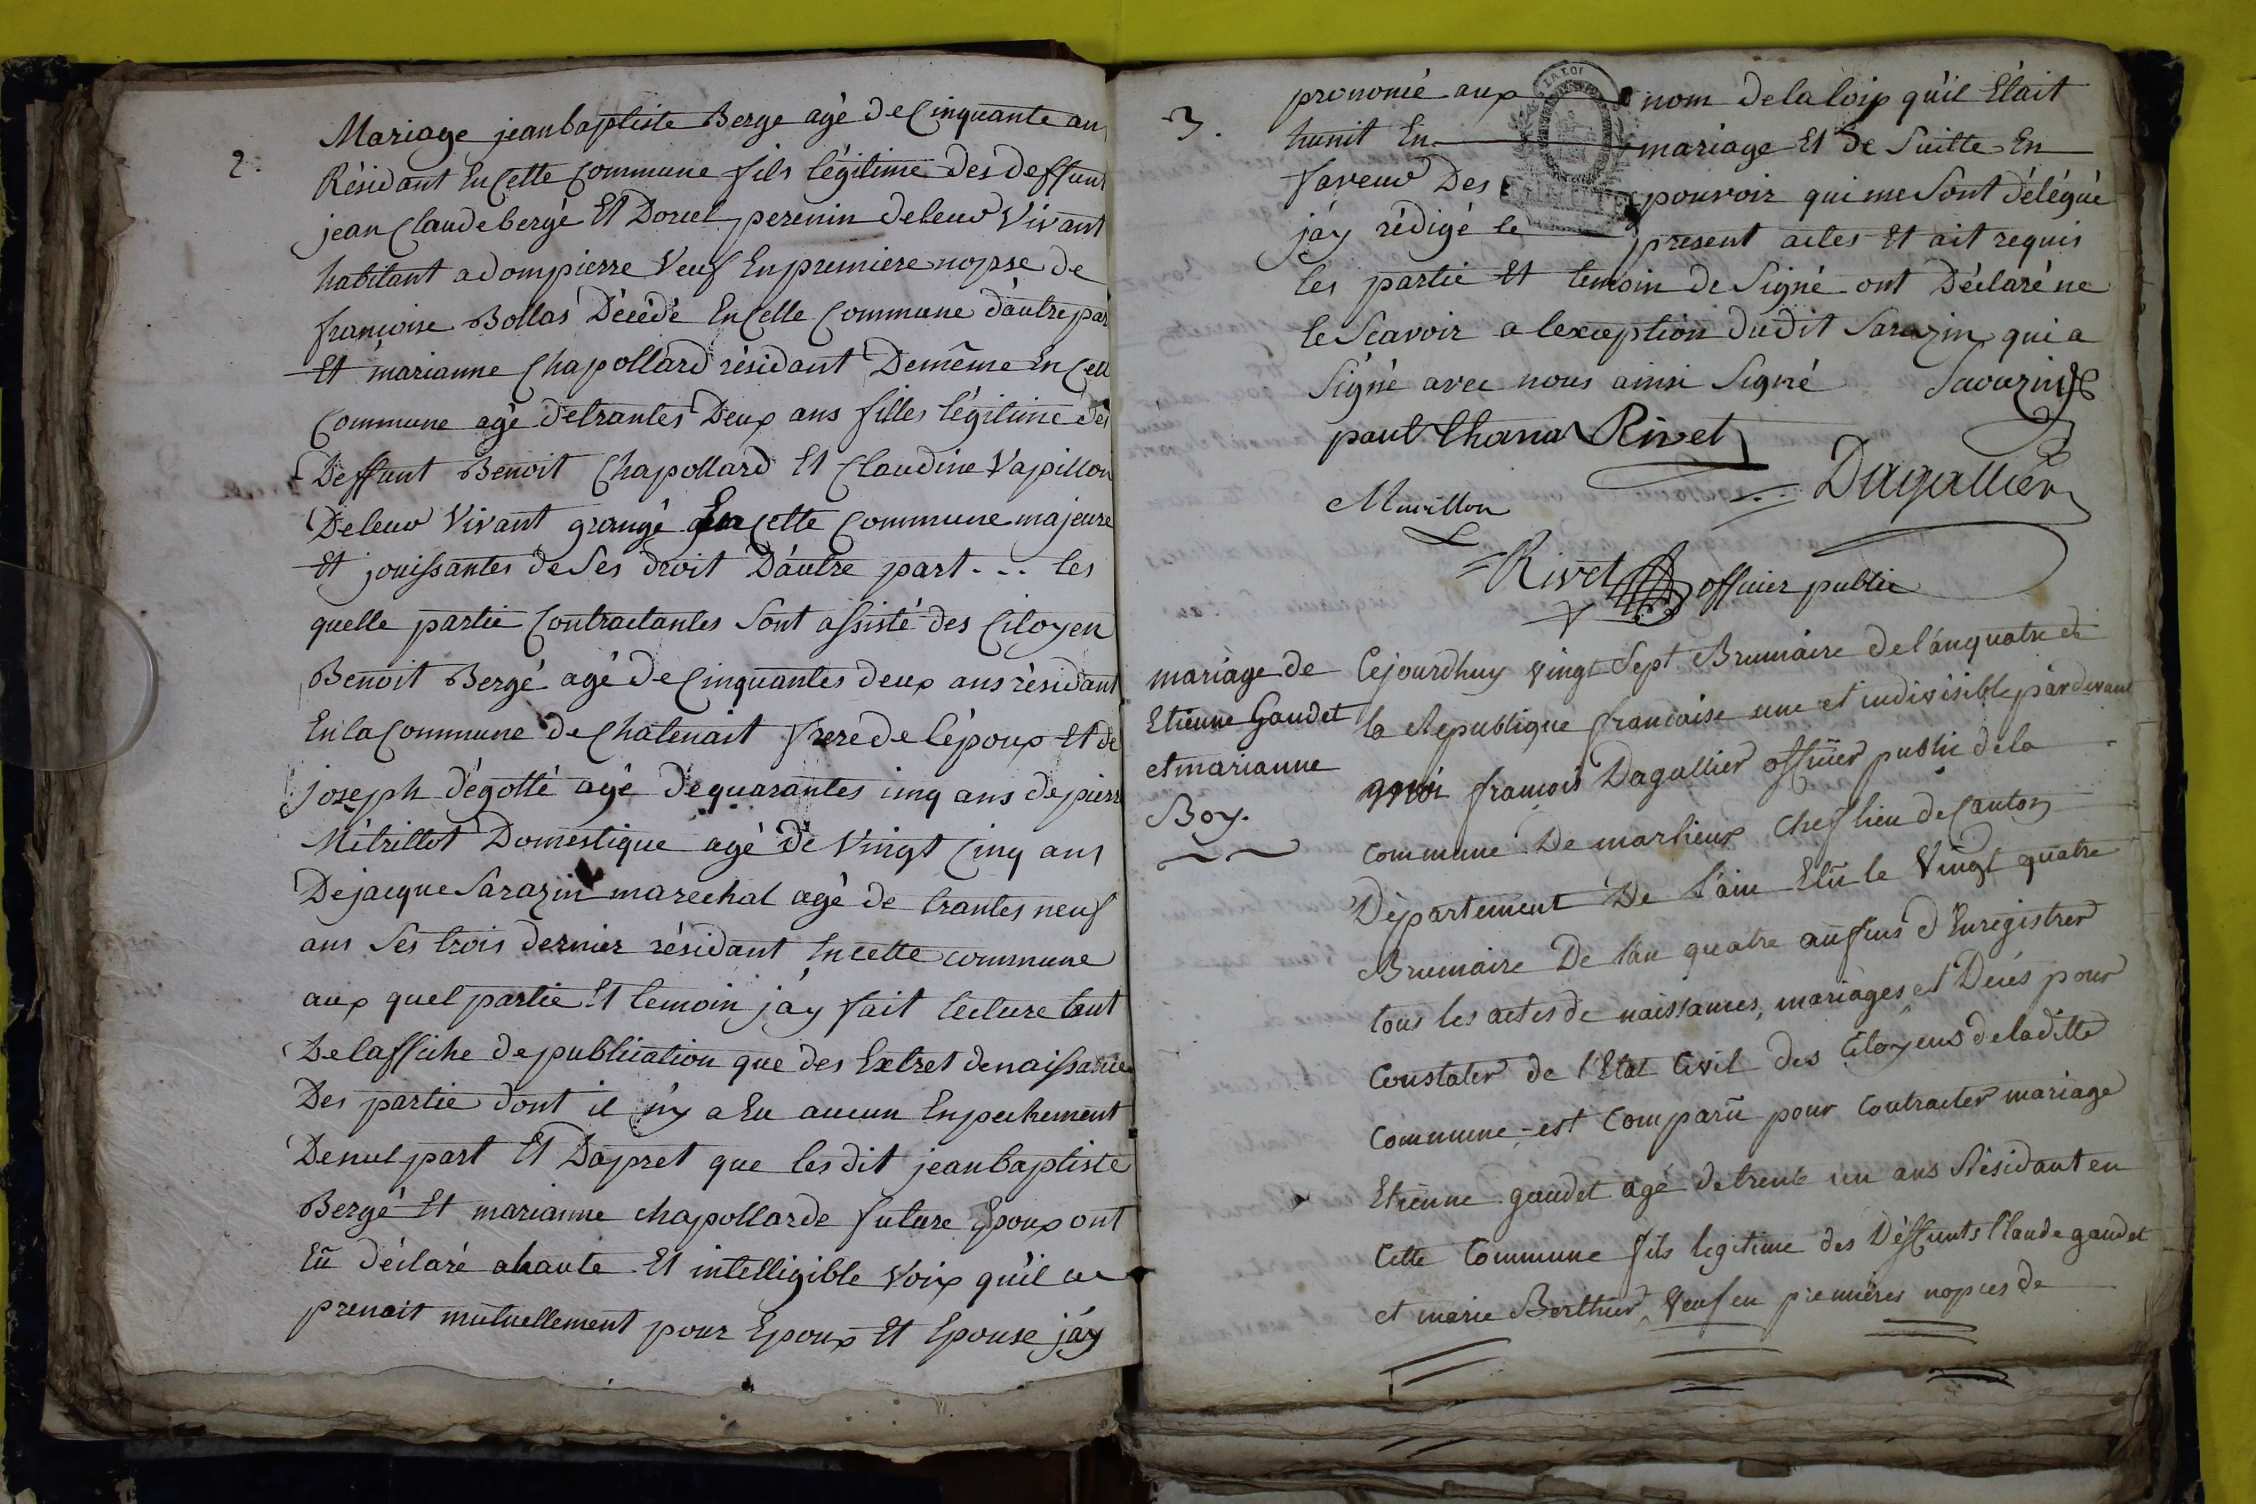 2.
Mariage jeanbaptiste Berge agé de Cinquante an
Résidant En Cette Commune fils légitime des deffunt
jean Claude bergé Et Dorcel perenin deleur Vivant
habitant a dompierre Veuf En premiere nopse de
françoise Bollas Décédé En Celle Commune d'autre par
Et marianne Chapollard résidant Demême En Cell
Commune agé detrantes Deux ans filles légitime des
Deffunt Benoit Chapollard Et Claudine Vapillon
Deleur Vivant grangé En Cette Commune majeure
Et jouissantes de Ses droit Dautre part - - - les
quelle partie Contractantes Sont assisté des Citoyen
Benoit Bergé agé de Cinquantes deux ans résidant
En la Commune de Chatenait frere de lépoux Et de
joseph dégotté agé dequarantes cinq ans de pierr
Mitrillot Domestique agé de Vingt Cinq ans
De jacque Sarazin marechal agé de trantes neuf
ans Ses trois dernier résidant En cette commune
aux quel partie Et temoin j'ay fait lecture tant
Delaffiche de publication que des Extret denaissance
Des partie dont il n'y a Eu aucun Enpechement
De nul part Et Dapret que les dit jeanbaptiste
Bergé Et marianne chapollarde future Epoux ont
Eü déclaré ahaute Et intelligible Voix qu'il ce
prenait mutuellement pour Epoux Et Epouse j'ay
3.
prononcé aux nom de la loix qu'il Etait
hunit En mariage Et de Suitte En
faveur Des pouvoir qui me Sont délégué
j'ay rédigé le present actes Et ait requis
les partie Et temoin de Signé ont Déclaré ne
le Scavoir a lexception dudit Sarazin qui a
Signé avec nous ainsi Signé Sarazin
paul Chana Rivet
Dagallier
Murillon
Rivet officier public
LA LOI
mariage de
Etienne Gaudet
et marianne
Boy.
Cejourdhuy vingt Sept Brumaire de l'an quatre de
la Republique francaise une et indivisible pardevant
moi francois Dagallier officier public de la
commune De marlieux Chef lieu de Canton
Département De l'ain Elü le Vingt quatre
Brumaire De l'an quatre aufins d'Enregistrer
tous les actes de naissances, mariages et Décès pour
Constater de l'Etat Civil des Citoyens de laditte
Commune - est Comparü pour Contracter mariage
Etienne gaudet agé de trente un ans Résidant en
Cette Commune fils legitime des Deffunts Claude gaudet
et marie Berthier, Veuf en premières nopces de